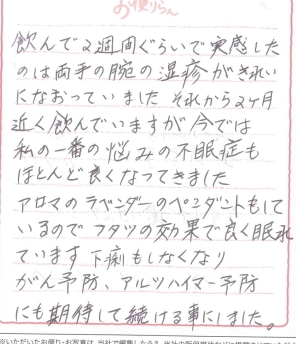 お便りらん
飲んで2週間ぐらいで実感した
のは両手の腕の湿疹がきれい
になおっていました それから2ヶ月
近く飲んでいますが今では
私の一番の悩みの不眠症も
ほとんど良くなってきました
アロマのラベンダーのペンダントもして
いるので フタツの効果で良く眠れ
ています 下痢もしなくなり
がん予防、アルツハイマー予防
にも期待して続ける事にしました。